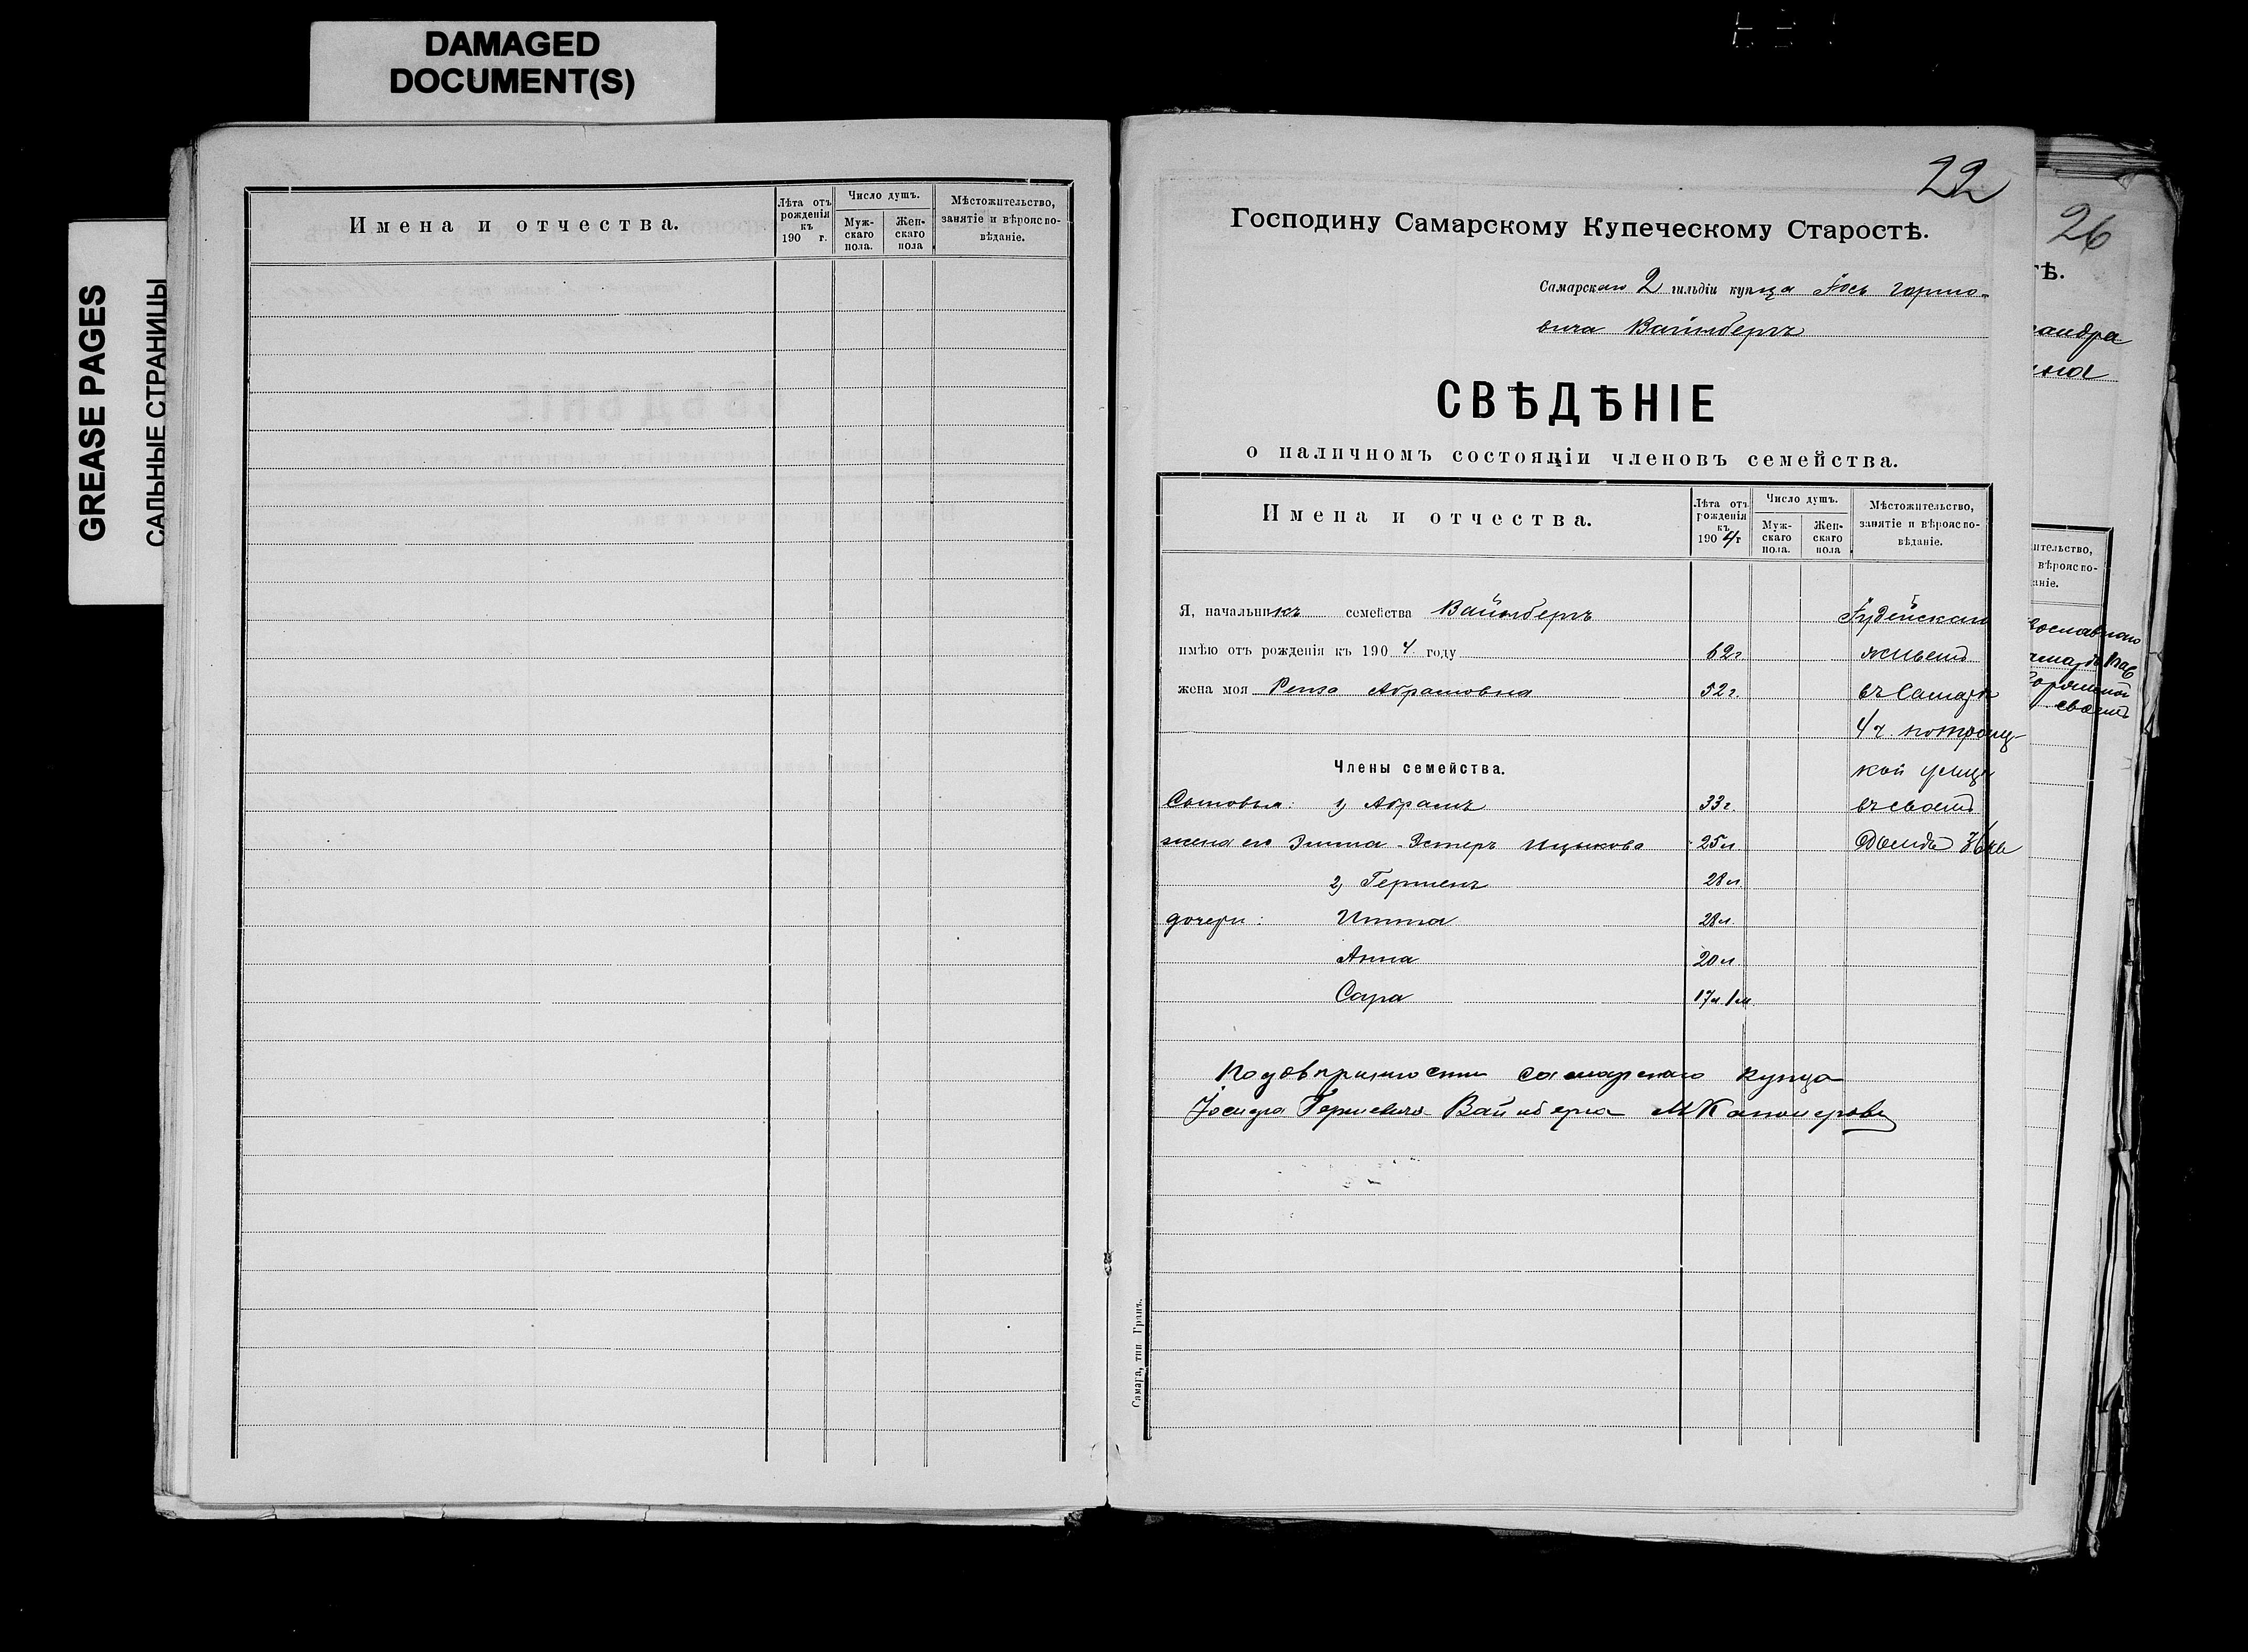 DAMAGED
DOCUMENT(S)
GREASE PAGES
САЛЬНЫЕ СТРАНИЦЫ
Имена и отчества.
Лѣта отъ рожденія къ 190 г.
Число душъ.
Муж-скаго пола.
Жен-скаго пола
Мѣстожительство, занятіе и вѣроиспо-вѣданіе.
22
Господину Самарскому Купеческому Старостѣ.
Самарскаго 2 гильдіи купца Іось Гермо-
вича Вайнбергъ
СВѢДѢНІЕ
о наличномъ состояніи членовъ семейства.
Имена и отчества.
Лѣта отъ рожденія къ 1904 г
Число душъ.
Муж-скаго пола.
Жен-скаго пола
Мѣстожительство, занятіе и вѣроиспо-вѣданіе.
Я, начальникъ семейства Вайнбергъ Іудейскаго
имѣю отъ рожденія къ 1904 году 62 г живетъ
жена моя Абрамовна 52 г. въ Самарѣ
4 ч. по Троиц-
Члены семейства. кой улицѣ
Сыновья: 1, Абрамъ 33 г. въ своемъ
жена его Эстеръ Ицыкова 25 л домѣ
2, Герменъ 28 л
дочери: 28 л.
Анна 20 л
Сара 17 л 1 м
По довѣренности самарскаго купца
Іосифа Гермовича Вайнберга
Самара, тип. Гранъ.
26
тѣ.
сандра
ина
ительство,
вѣроиспо-
аніе.
своемъ